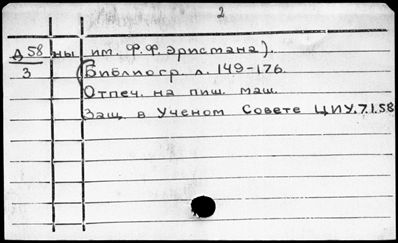 2
Д58 ны им. Ф.Ф. Эрисмана).
3 (Библиогр. л. 149-176.
Отпеч. на пиш. маш.
Защ. в Ученом Совете ЦИУ. 7.I.58